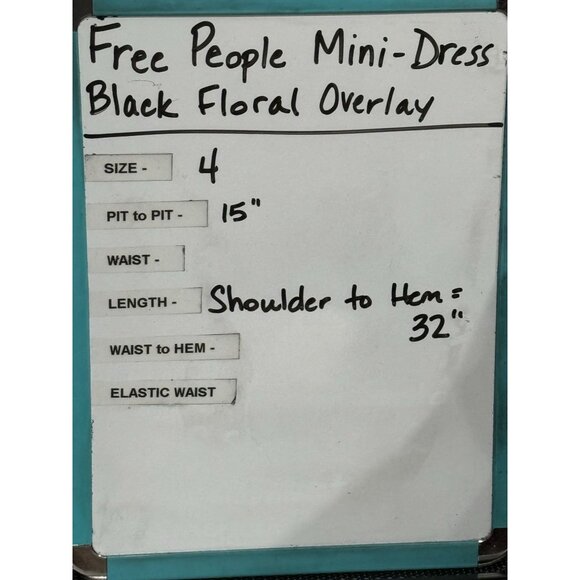 Free People Mini-Dress -
Black Floral Overlay
SIZE - 4
PIT to PIT - 15"
WAIST -
LENGTH - Shoulder to Hem =
32"
WAIST to HEM -
ELASTIC WAIST